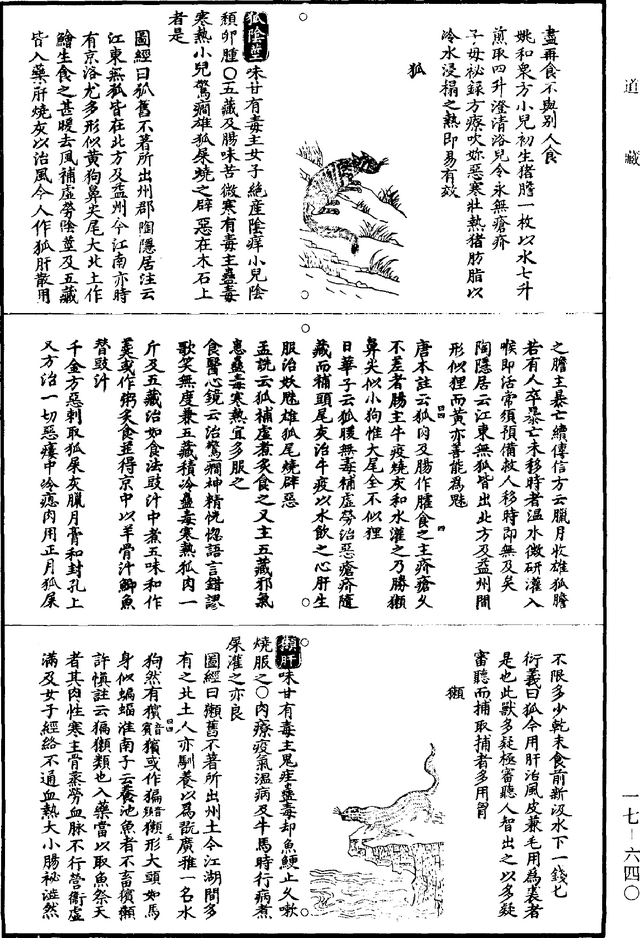 道藏
盡再食不與別人食
姚和衆方小兒初生猪膽一枚以水七升
煎取四升澄清浴兒令永無瘡疥
子母祕録方療吹妳惡寒壯熱猪肪脂以
冷水浸搨之熱即易有效
狐
狐陰莖味甘有毒主女子絶産陰痒小兒陰
㿗卵腫○五藏及腸味苦微寒有毒主蠱毒
寒熱小兒驚癎雄狐屎燒之辟惡在木石上
者是
圖經曰狐舊不著所出州郡陶隱居注云
江東無狐皆在北方及益州今江南亦時
有京洛尤多形似黄狗鼻尖尾大北土作
鱠生食之甚暖去風補虚勞陰莖及五藏
皆入藥肝燒灰以治風今人作狐肝散用
之膽主暴亡續傳信方云臘月收雄狐膽
若有人卒暴亡未移時者温水微研灌入
喉即活常須預備救人移時即無及矣
陶隱居云江東無狐皆出北方及益州間
形似狸而黄亦善能爲魅
唐本註云狐肉及腸作臛食之主疥瘡久
不差者腸主牛疫燒灰和水灌之乃勝獺
鼻尖似小狗惟大尾全不似狸
日華子云狐暖無毒補虚勞治惡瘡疥隨
藏而補頭尾灰治牛疫以水飲之心肝生
服治妖魅雄狐尾燒辟惡
孟詵云狐補虚煮炙食之又主五藏邪氣
患蠱毒寒熱宜多服之
食醫心鏡云治驚癎神精恍惚語言錯謬
歌笑無度兼五藏積冷蠱毒寒熱狐肉一
斤及五藏治如食法豉汁中煮五味和作
羮或作粥炙食並得京中以羊骨汁鯽魚
替豉汁
千金方惡刺取狐屎灰臘月膏和封孔上
又方治一切惡瘻中冷瘜肉用正月狐屎
不限多少乾末食前新汲水下一錢匕
衍義曰狐今用肝治風皮兼毛用爲裘者
是也此獸多疑極審聽人智出之以多疑
審聽而捕取捕者多用罝
獺
獺肝味甘有毒主鬼疰蠱毒却魚鯁止久嗽
燒服之○肉療疫氣温病及牛馬時行病煮
屎灌之亦良
圖經曰獺舊不著所出州土今江湖間多
有之北土人亦馴養以爲翫廣雅一名水
狗然有獱音賓獺或作猵音獱獺形大頭如馬
身似蝙蝠淮南子云養池魚者不畜獱獺
許慎註云猵獺類也入藥當以取魚祭天
者其肉性寒主骨蒸勞血脉不行營衛虚
滿及女子經絡不通血熱大小腸祕澁然
一七-六四〇